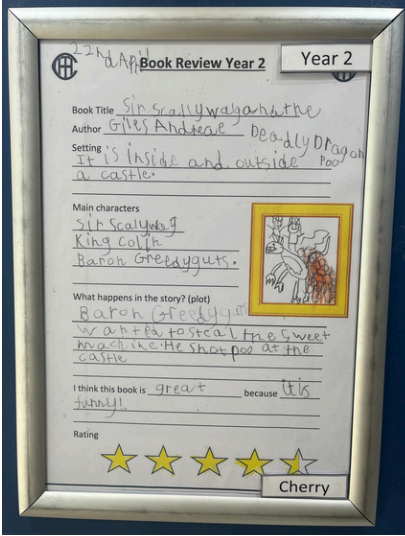 22nd April
Book Review Year 2
Year 2
Book Title Sir Scallywag and the
Deadly Dragon
Poo
Author Giles Andreae
Setting
It is inside and outside
a castle.
Main characters
Sir Scalywag
King Colin
Baron Greedyguts.
What happens in the story? (plot)
Baron Greedygut
wanted to steal the sweet
machine. He shot poo at the
castle
I think this book is great because it is
funny!
Rating
Cherry